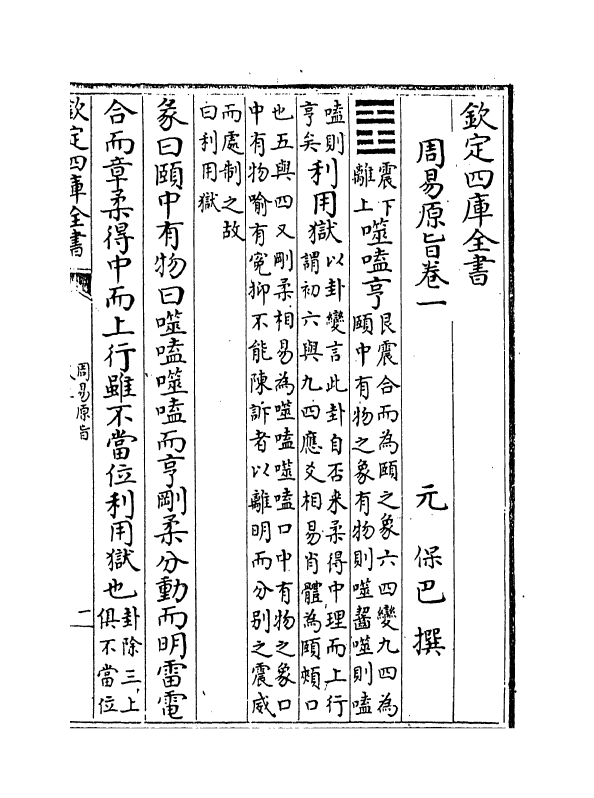 欽定四庫全書
周易原旨卷一
元 保巴 撰
震下
離上
噬嗑亨
艮震合而為頤之象六四變九四為
頤中有物之象有物則噬齧噬則嗑
嗑則
亨矣
利用獄
以卦變言此卦自否来柔得中理而上行
謂初六與九四應爻相易肖體為頤頰口
也五與四又剛柔相易為噬嗑噬嗑口中有物之象口
中有物喻有寃抑不能陳訴者以離明而分别之震威
而處制之故
曰利用獄
彖曰頤中有物曰噬嗑噬嗑而亨剛柔分動而明雷電
合而章柔得中而上行雖不當位利用獄也
卦除三上
俱不當位
欽定四庫全書
周易原旨
二